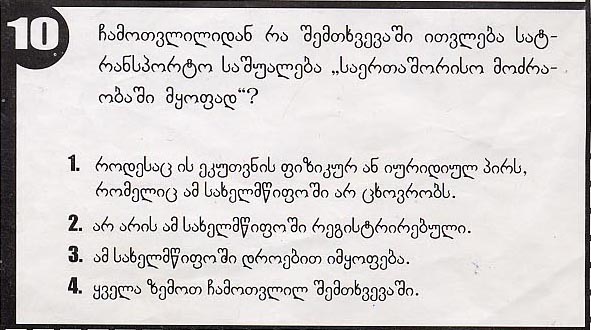 10
ჩამოთვლილიდან რა შემთხვევაში ითვლება სატ-
რანსპორტო საშუალება „საერთაშორისო მოძრა-
ობაში მყოფად“?
1. როდესაც ის ეკუთვნის ფიზიკურ ან იურიდიულ პირს,
რომელიც ამ სახელმწიფოში არ ცხოვრობს.
2. არ არის ამ სახელმწიფოში რეგისტრირებული.
3. ამ სახელმწიფოში დროებით იმყოფება.
4. ყველა ზემოთ ჩამოთვლილ შემთხვევაში.